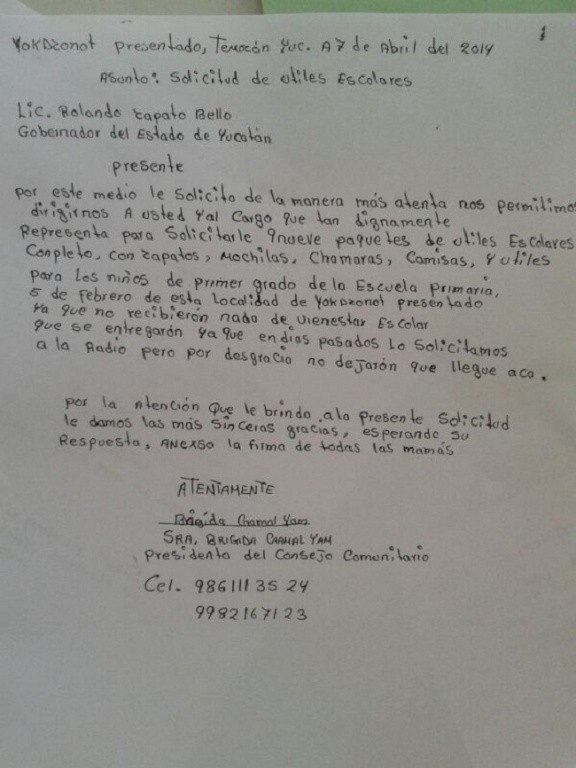 1
Yokdzonot presentado, Temozón Yuc. A 7 de Abril del 2014
Asunto: Solicitud de utiles Escolares
Lic. Rolando zapato Bello
Gobernador del Estado de Yucatán
presente
por este medio le Solicito de la manera más atenta nos permitimos
dirigirnos A usted Y al Cargo que tan dignamente
Representa para Solicitarle 9nueve paquetes de utiles Escolares
Conpleto, con zapatos, Mochilas, Chamaras, Camisas, Y utiles
para los niños de primer grado de la Escuela primaria,
5 de Febrero de esta localidad de Yokdzonot presentado
Ya que no recibieron nada de vienestar Escolar
que se entregarón ya que en dias pasados lo Solicitamos
a la Radio pero por desgracia no dejarón que llegue aca.
por la Atención Que le brinda ala presente Solicitud
le damos las más Sinceras gracias, esperando su
Respuesta, ANEXSO la firma de todas las mamás
ATENTAMENTE
Brigida Chamal Yam
SRA, BRIGIDA CHAMAL YAM
Presidenta del Consejo Comunitario
Cel. 986111 35 24
9982167123